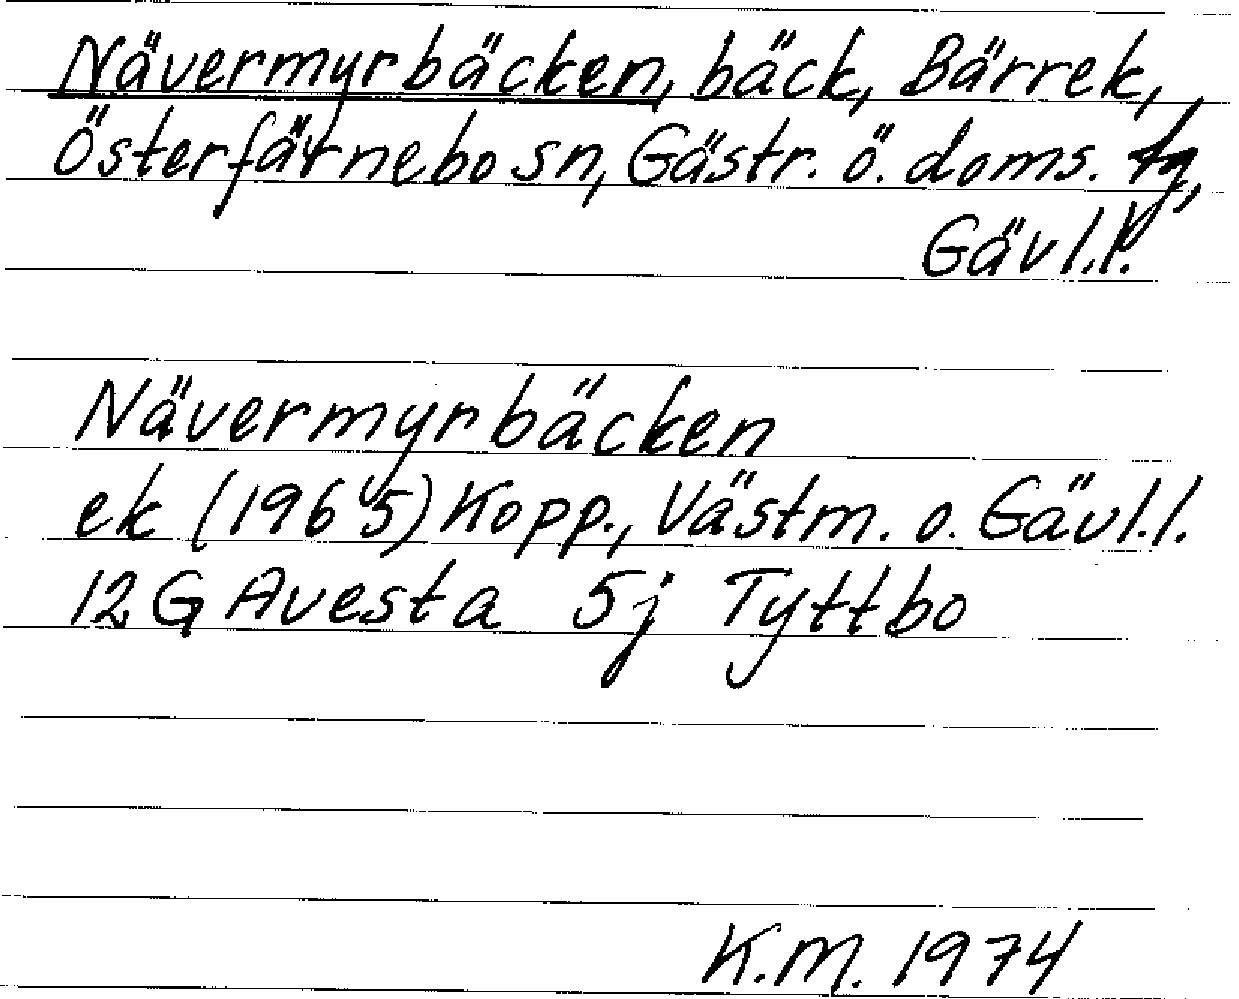 Nävermyrbäcken, bäck, Bärrek,
Österfärnebo sn, Gästr. ö. doms. tg,
Gävl.l.
Nävermyrbäcken
ek (1965) Kopp., Västm. o. Gävl.l.
12G Avesta 5j Tyttbo
K.M. 1974